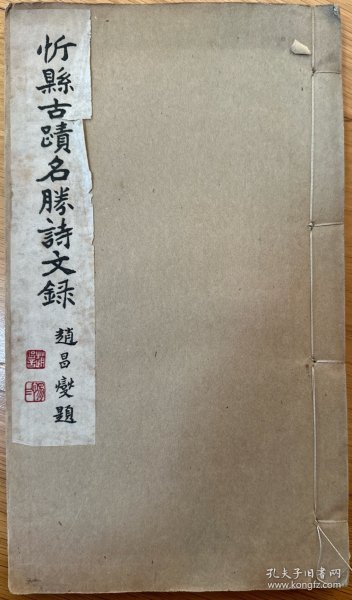 忻縣古蹟名勝詩文録
趙昌燮題
孔夫子旧书网
www.kongfz.com